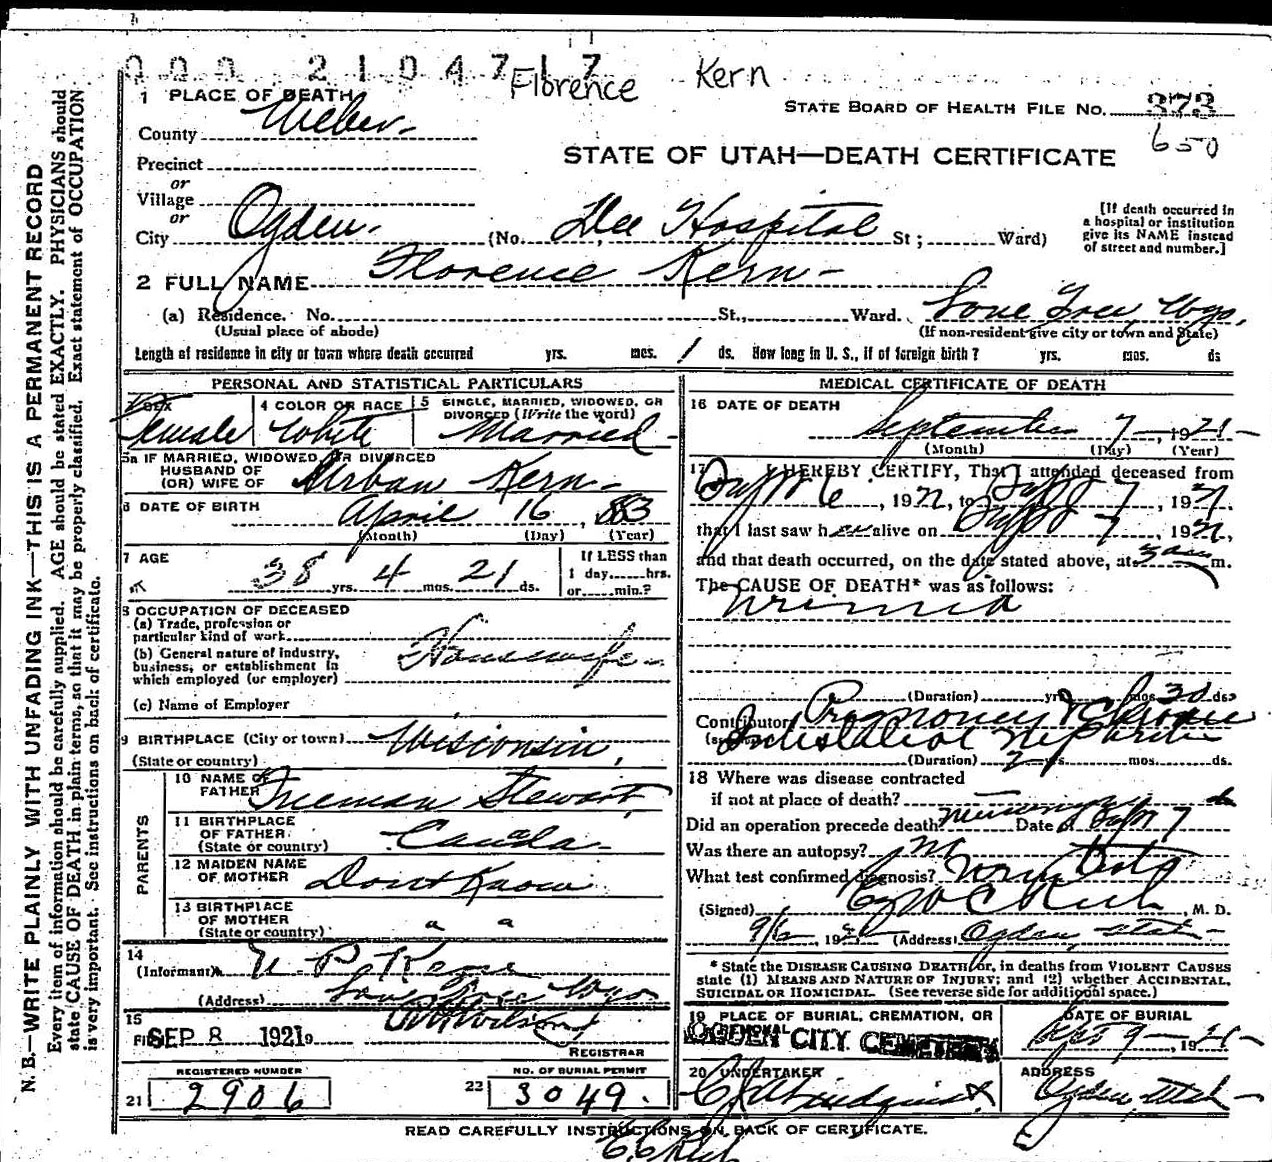 000 2104717
Florence Kern
1 PLACE OF DEATH
STATE BOARD OF HEALTH FILE NO. 373
650
County Weber
STATE OF UTAH—DEATH CERTIFICATE
Precinct
or
Village
or
City Ogden (No. Dee Hospital St; Ward)
[If death occurred in a hospital or institution give its NAME instead of street and number.]
2 FULL NAME Florence Kern
(a) Residence. No. St., Ward. Lone Tree, Wyo.
(Usual place of abode) (If non-resident give city or town and State)
Length of residence in city or town where death occurred yrs. mos. 1 ds. How long in U. S., if of foreign birth? yrs. mos. ds
PERSONAL AND STATISTICAL PARTICULARS
3 SEX Female
4 COLOR OR RACE White
5 SINGLE, MARRIED, WIDOWED, OR DIVORCED (Write the word) Married
5a IF MARRIED, WIDOWED, OR DIVORCED
HUSBAND OF
(OR) WIFE OF Urban Kern
6 DATE OF BIRTH April 16, 883
(Month) (Day) (Year)
7 AGE 38 yrs. 4 mos. 21 ds.
If LESS than 1 day, hrs. or min.?
8 OCCUPATION OF DECEASED
(a) Trade, profession or particular kind of work
Housewife
(b) General nature of industry, business, or establishment in which employed (or employer)
(c) Name of Employer
9 BIRTHPLACE (City or town) Wisconsin,
(State or country)
PARENTS
10 NAME OF FATHER Freeman Stewart
11 BIRTHPLACE OF FATHER (State or country) Canada
12 MAIDEN NAME OF MOTHER Dont Know
13 BIRTHPLACE OF MOTHER (State or country) " "
14 (Informant) U. P. Kern
(Address) Lone Tree Wyo
15 Filed SEP 8 1921
Wilson
REGISTRAR
REGISTERED NUMBER
21 2906
NO. OF BURIAL PERMIT
22 3049.
MEDICAL CERTIFICATE OF DEATH
16 DATE OF DEATH
September 7, 1921
(Month) (Day) (Year)
17 I HEREBY CERTIFY, That I attended deceased from
Sept 6, 1921, to Sept 7, 1921
that I last saw her alive on Sept 7, 1921,
and that death occurred, on the date stated above, at 3 am m.
The CAUSE OF DEATH* was as follows:
Uremia
(Duration) yrs. mos. 30 ds.
Contributory Pregnancy & Chronic
Interstitial Nephritis
(Duration) 2 yrs. mos. ds.
18 Where was disease contracted
if not at place of death?
Did an operation precede death? Date of Sept 7
Was there an autopsy? no
What test confirmed diagnosis?
(Signed) Rich, M. D.
1921 (Address) Ogden, Utah
* State the DISEASE CAUSING DEATH or, in deaths from VIOLENT CAUSES state (1) MEANS AND NATURE OF INJURY; and (2) whether ACCIDENTAL, SUICIDAL OR HOMICIDAL. (See reverse side for additional space.)
19 PLACE OF BURIAL, CREMATION, OR REMOVAL
OGDEN CITY CEMETERY
DATE OF BURIAL
9, 1921
20 UNDERTAKER
Lindquist
ADDRESS
Ogden, Utah
READ CAREFULLY INSTRUCTIONS ON BACK OF CERTIFICATE.
N. B.—WRITE PLAINLY WITH UNFADING INK—THIS IS A PERMANENT RECORD
Every item of information should be carefully supplied. AGE should be stated EXACTLY. PHYSICIANS should
state CAUSE OF DEATH in plain terms, so that it may be properly classified. Exact statement of OCCUPATION
is very important. See instructions on back of certificate.